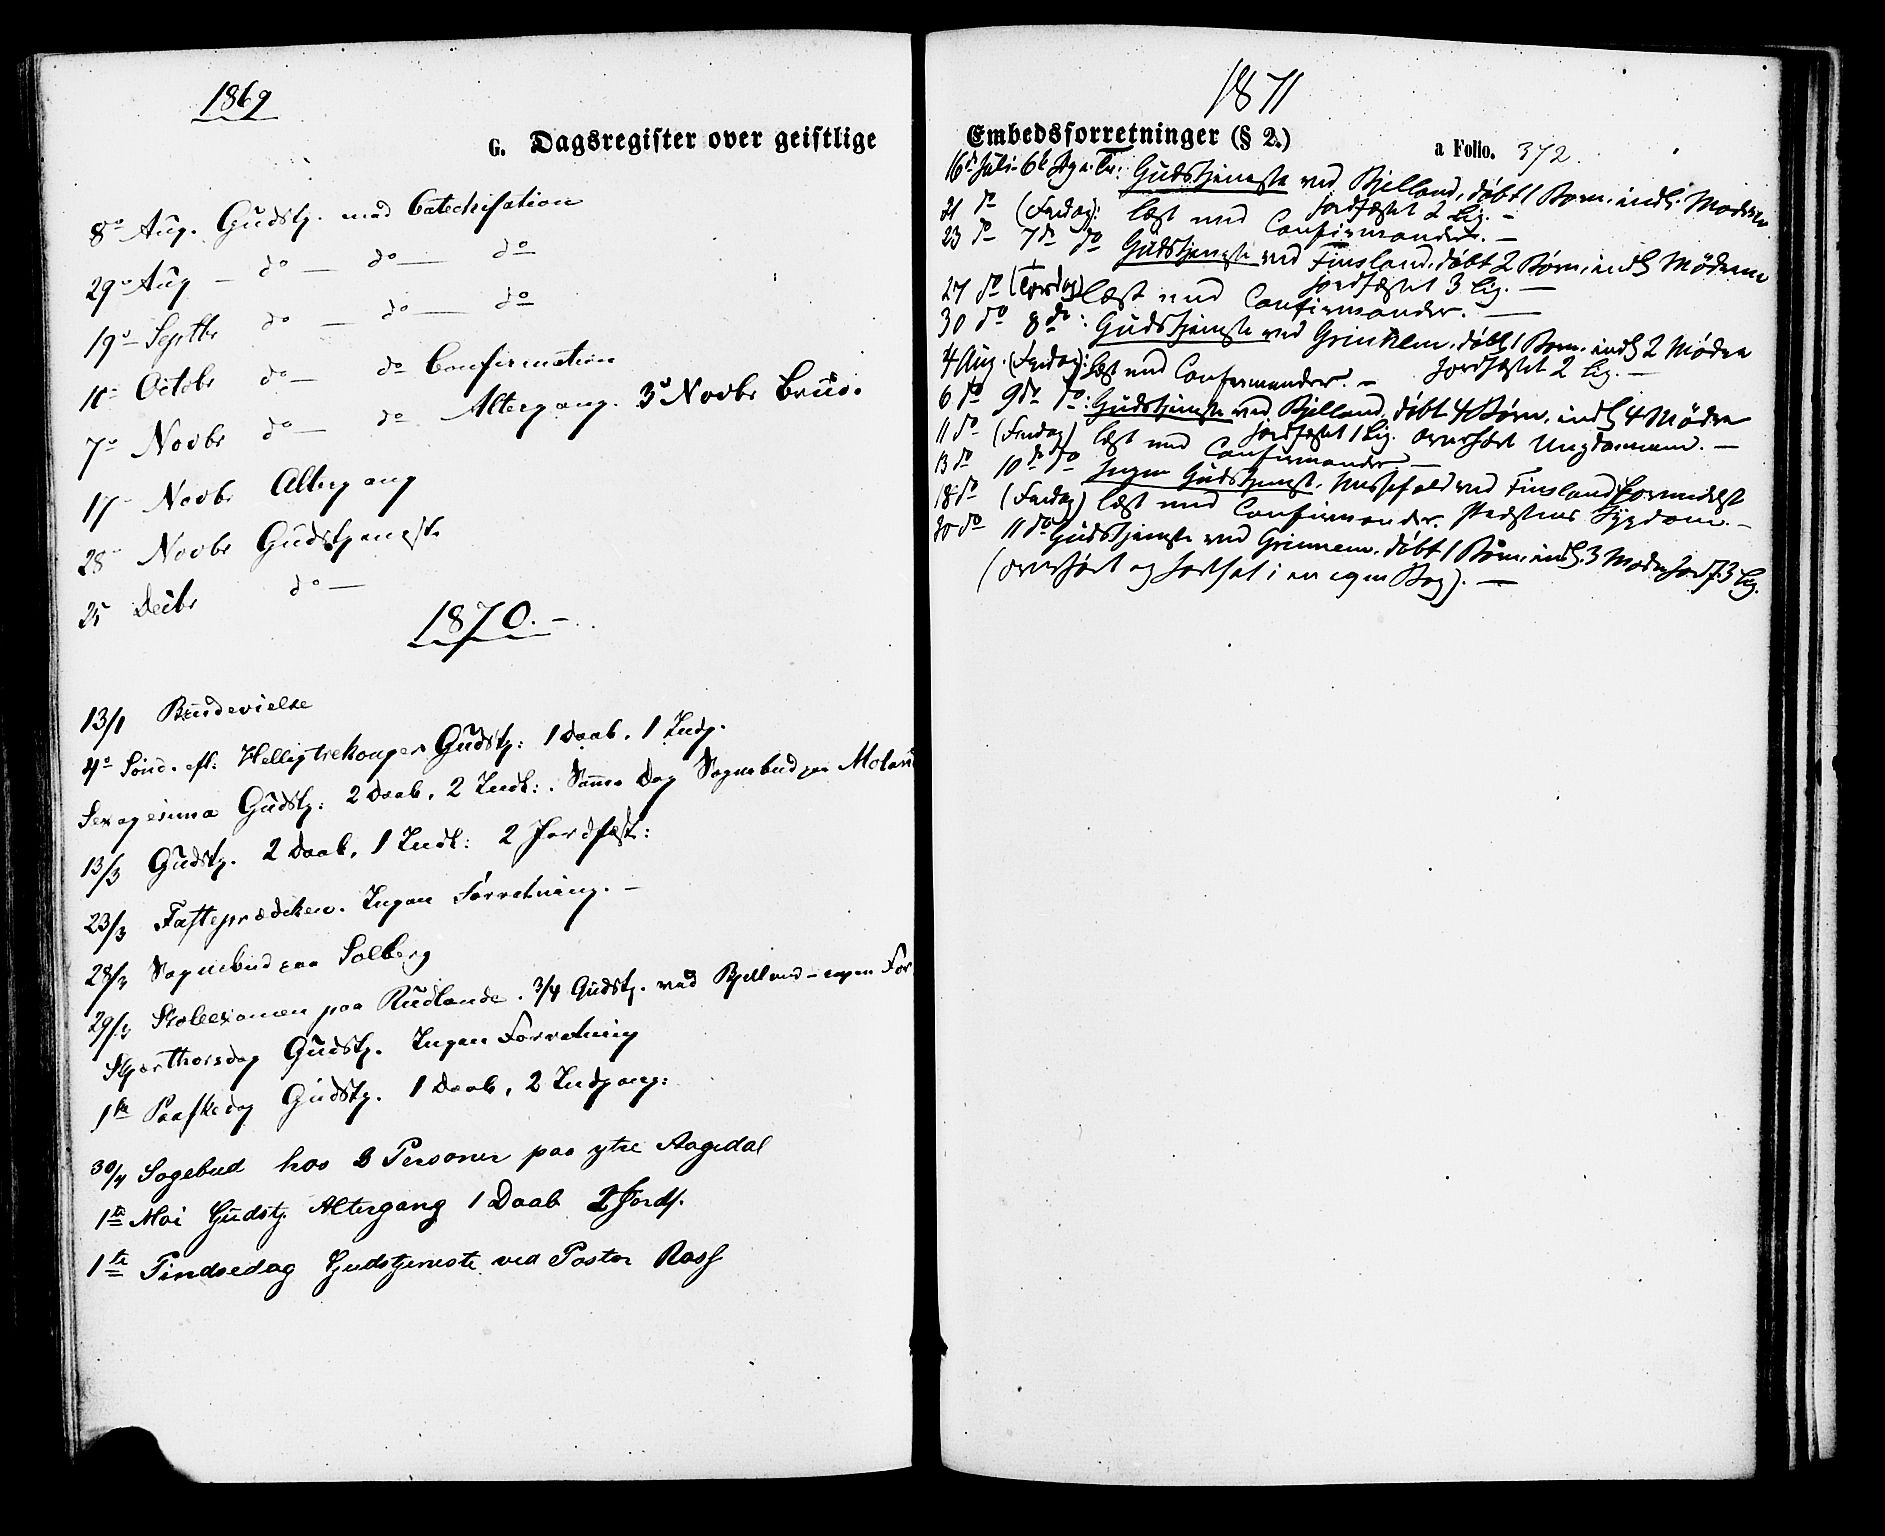 1869
G. Dagsregister over geistlige
8de Aug. Gudstj. med Catechisation
29de Aug — do — do — do
19de Septbr do — do — do
10de Octobr do — do Confirmation
7de Novbr do — do Altergang. 3de Novbr Brud.
17de Novbr Altergang
28de Novbr Gudstjeneste
25 Decbr do —
1870. —
13/1 Brudevielse
4de Sönd. eft. Helligtrekonger Gudstj: 1 Daab, 1 Indg.
Sexagesima Gudstj: 2 Daab, 2 Indl: . Samme Dag Sognebud paa
13/3 Gudstj. 2 Daab, 1 Indl: 2 Jordfæst:
23/3 Fasteprædiken. Ingen Forretning. —
28/3 Sognebud paa Solberg
29/3 Skoleexamen paa Rudlande. 3/4 Gudstj. ved Bjelland – ingen For
Skjærthorsdag Gudstj. Ingen Forretning
1ste Paaskedag Gudstj. 1 Daab, 2 Indgang:
30/4 Sogebud hos 3 Personer paa ytre Aagedal
1ste Mai Gudstj. Altergang 1 Daab 2 Jordf.
1ste Pindsedag Gudstjeneste ved Pastor
1871
Embedsforretninger (§ 2.)
a Folio. 372.
16de Juli 6te S. e. Tr: Gudstjeneste ved Bjelland, døbt 1 Barn, indl. Moderen
jordfæstet 2 Lig. —
21 do (Fredag): læst med Confirmander. —
23 do 7de do Gudstjeneste ved Finsland, døbt 2 Børn, indl. Mødrene
jordfæstet 3 Lig. —
27 do (Torsdag) læst med Confirmander. —
30 do 8de: Gudstjeneste ved Grindem, døbt 1 Barn, indl. 2 Mødre
jordfæstet 2 Lig. —
4 Aug. (Fredag): læst med Confirmander. —
6 do 9de do: Gudstjeneste ved Bjelland, døbt 4 Børn, indl. 4 Mødre
jordfæstet 1 Lig. overhørt Ungdommen. —
11 do (Fredag) læst med Confirmander —
13 do 10de do Ingen Gudstjeneste, Messefald ved Finsland formedelst
Præstens Sygdom. —
18 do (Fredag) læst med Confirmander.
20 do 11 do Gudstjeneste ved Grinnem, døbt 1 Barn, indl. 3 Mødre jordf. 3 Lig.
(overført og fortsat i en egen Bog). —